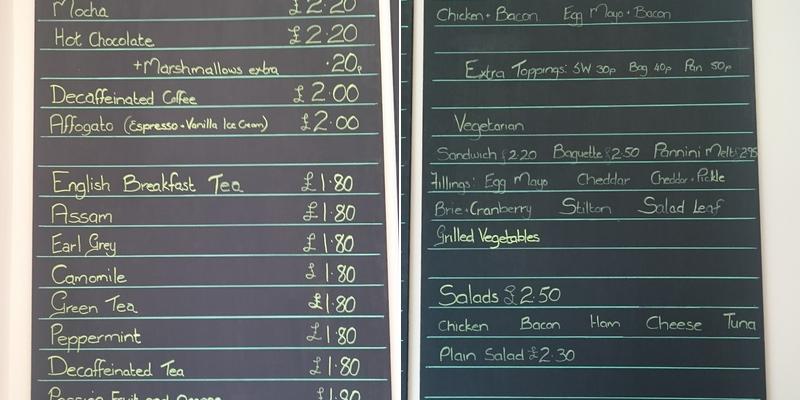 Mocha £2.20
Hot Chocolate £2.20
+Marshmallows extra .20p
Decaffeinated Coffee £2.00
Affogato (Espresso+Vanilla Ice Cream) £2.00
English Breakfast Tea £1.80
Assam £1.80
Earl Grey £1.80
Camomile £1.80
Green Tea £1.80
Peppermint £1.80
Decaffeinated Tea £1.80
Passion Fruit and Orange £1.80
Chicken+Bacon Egg Mayo+Bacon
Extra Toppings: SW 30p Bag 40p Pan 50p
Vegetarian
Sandwich £2.20 Baguette £2.50 Pannini Melt £2.95
Fillings: Egg Mayo Cheddar Cheddar+Pickle
Brie+Cranberry Stilton Salad Leaf
Grilled Vegetables
Salads £2.50
Chicken Bacon Ham Cheese Tuna
Plain Salad £2.30